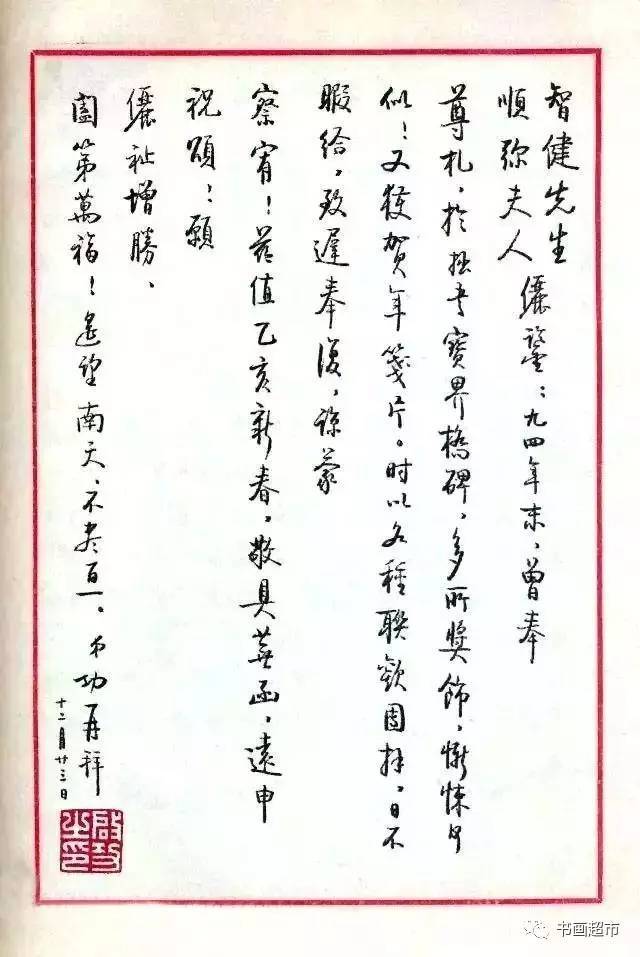 智健先生
順弥夫人 儷鑒：九四年末、曾奉
尊札，於拙書寶界橋碑，多所獎飾，慚悚何
似！又獲賀年箋片。时以各種聯歡團拜，日不
暇给，致遲奉復，諒蒙
察宥！茲值乙亥新春，敬具蕪函，遠申
祝頌：願
儷祉增勝、
闔第萬福！遥望南天、不尽百一。弟功再拜
十二月廿三日
啟功之印
书画超市